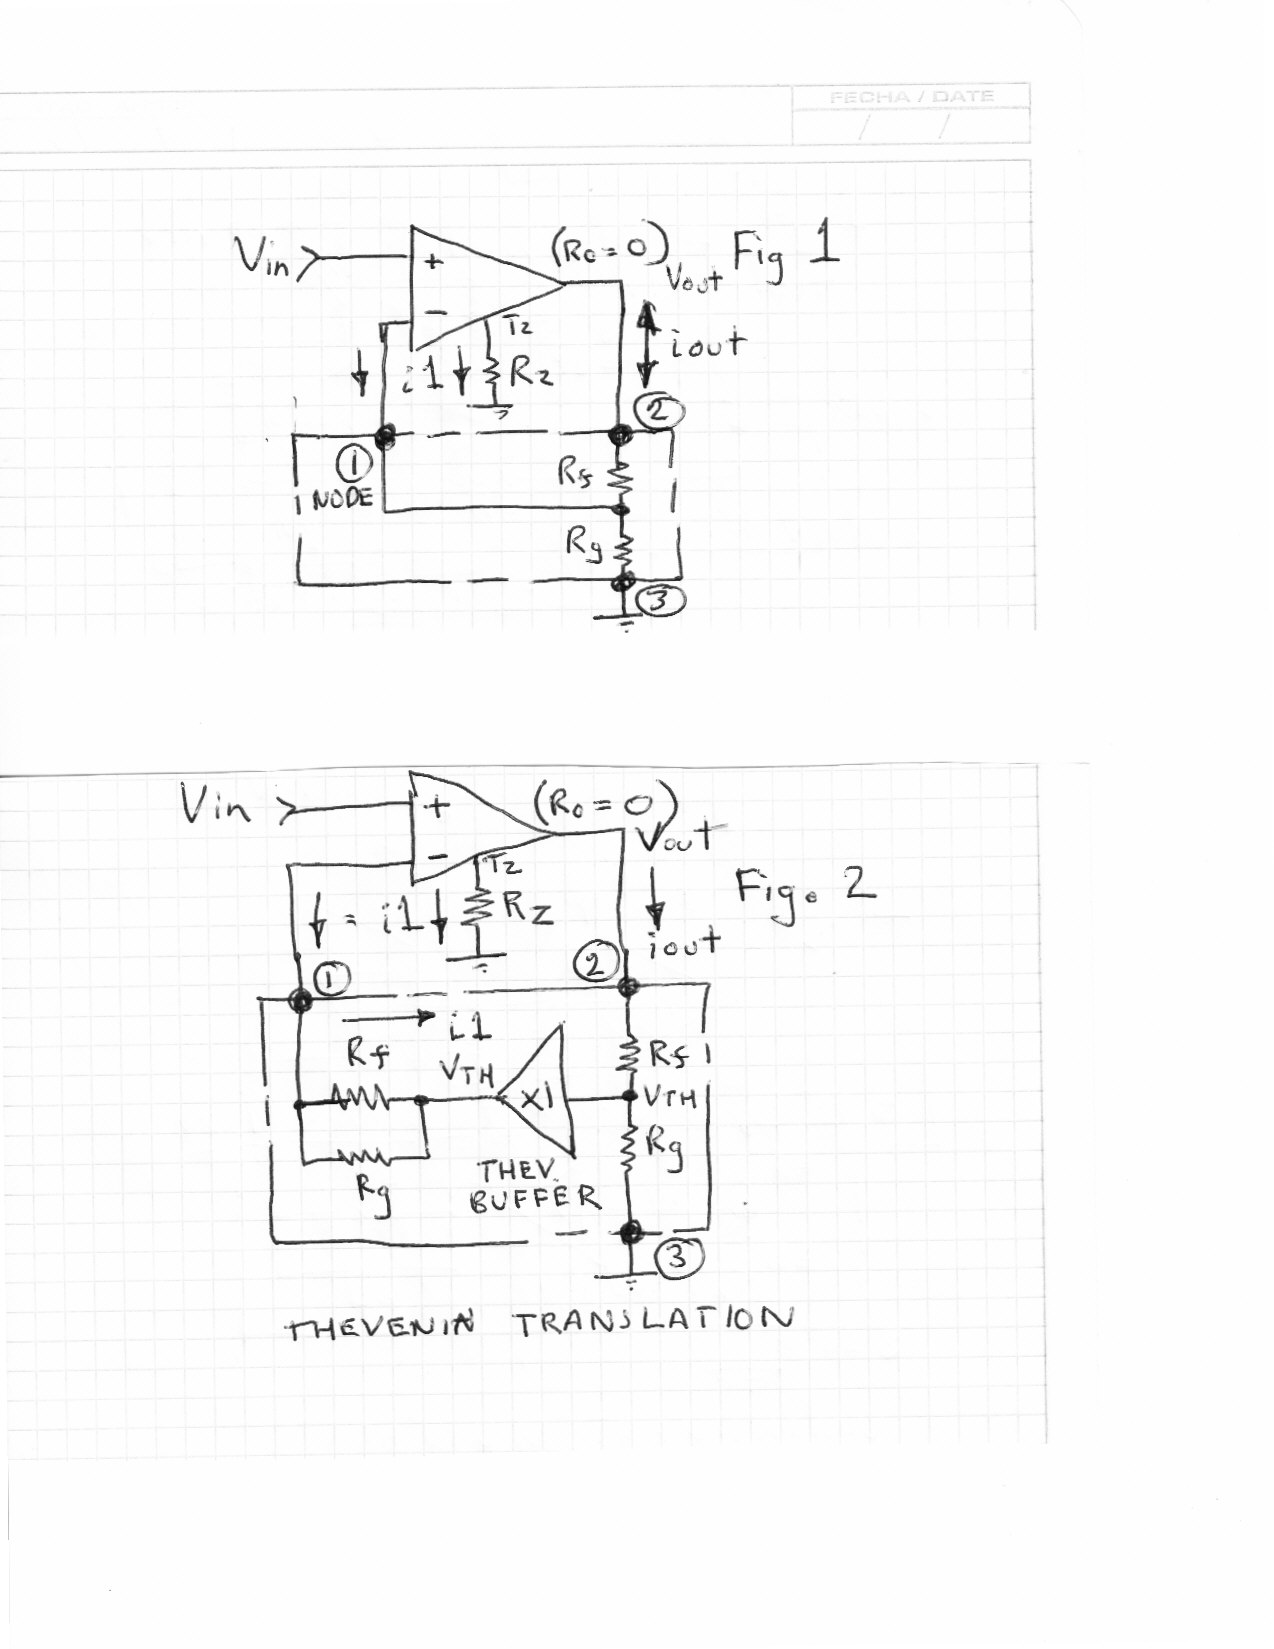 FECHA / DATE
/ /
Vin
+
(Ro = 0)
Vout
Fig 1
-
Tz
i1
Rz
iout
2
1
NODE
Rf
Rg
3
Vin
+
(Ro = 0)
Vout
-
Tz
Fig. 2
= i1
RZ
iout
1
2
i1
Rf
VTH
X1
Rf
VTH
Rg
Rg
THEV.
BUFFER
3
THEVENIN TRANSLATION